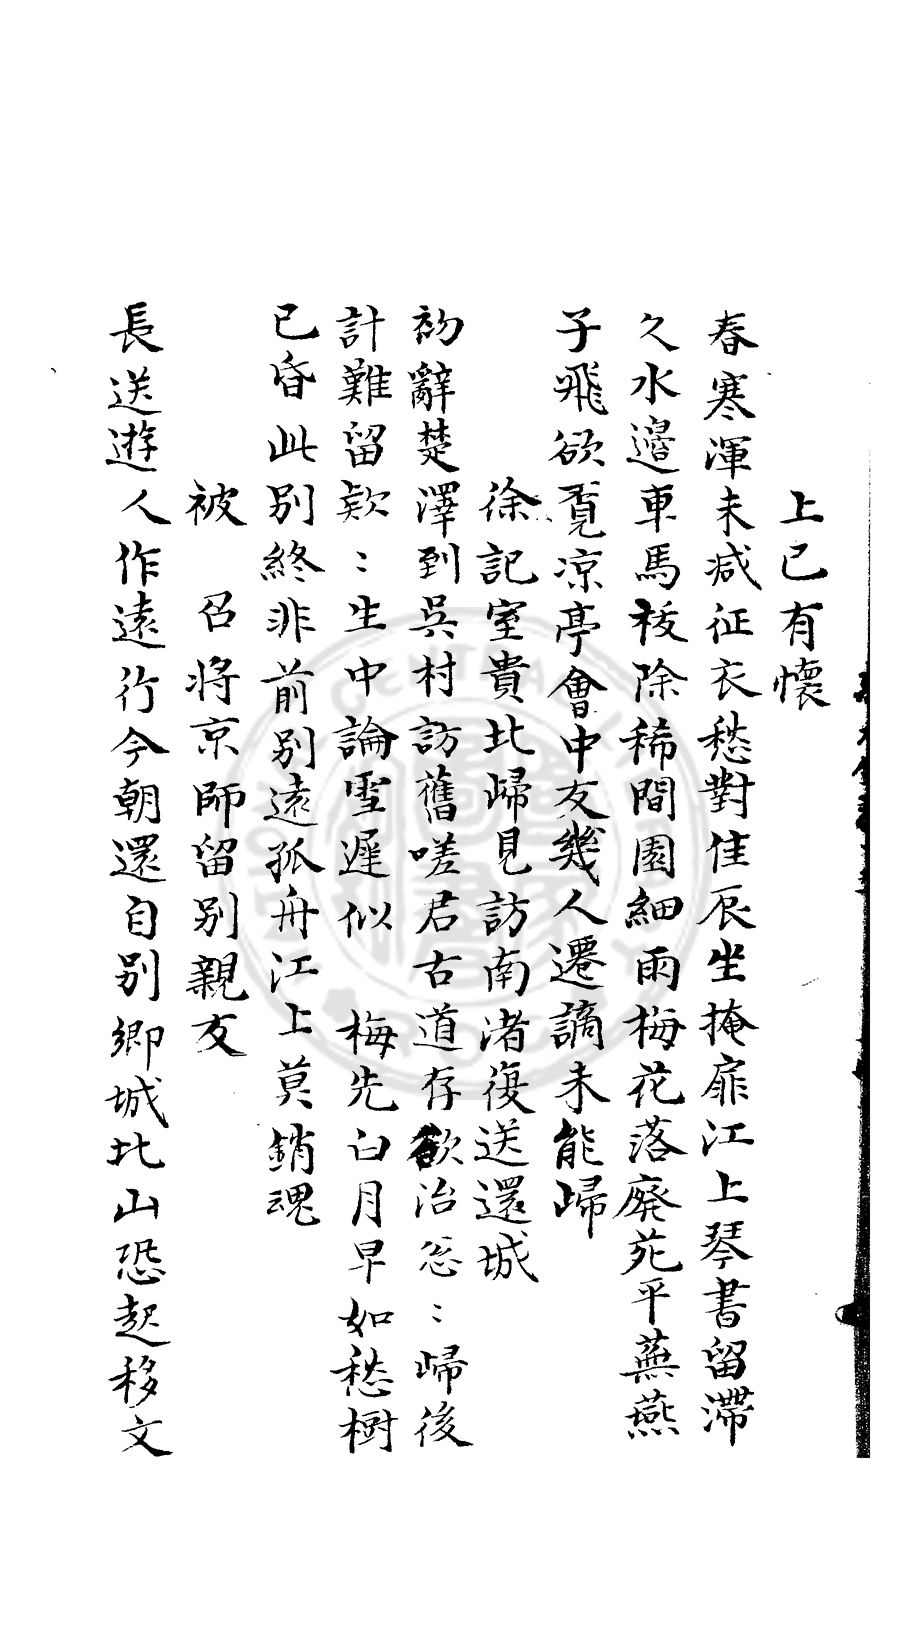 上巳有懷
春寒渾未減征衣愁對佳辰坐掩扉江上琴書留滯
久水邊車馬祓除稀閒園細雨梅花落廢苑平蕪燕
子飛欲覓涼亭會中友幾人遷謫未能歸
徐記室貴北歸見訪南渚復送還城
初辭楚澤到吳村訪舊嗟君古道存欲治怱〻歸後
計難留欵〻生中論雪遲似 梅先臼月早如愁樹
已昏此別終非前別遠孤舟江上莫銷魂
被 召將京師留別親友
長送遊人作遠行今朝還自別鄉城北山恐起移文